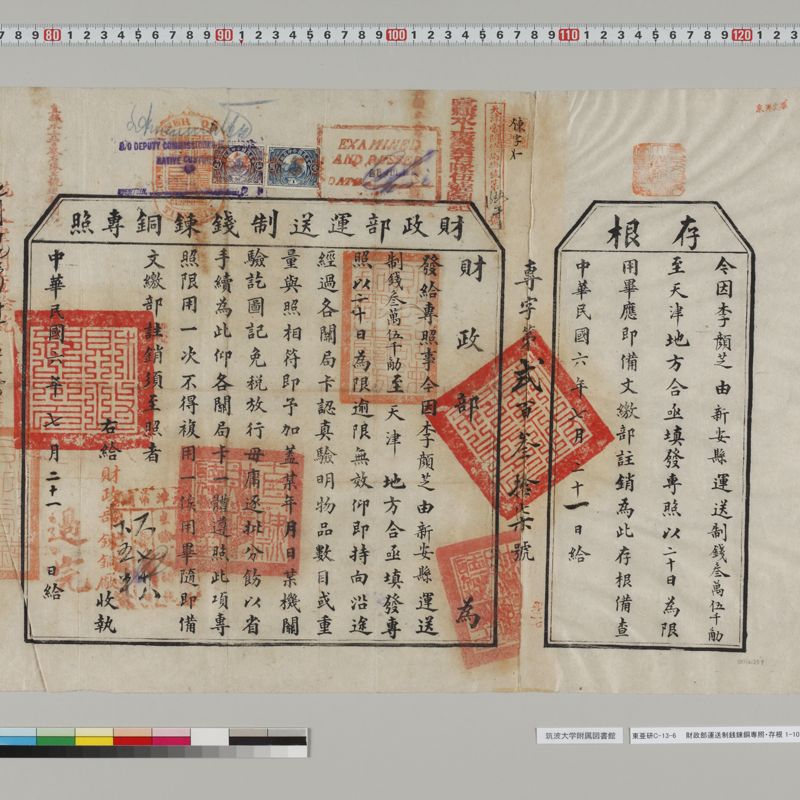 存根
今因李顏芝由新安縣運送制錢叁萬伍千觔
至天津地方合亟填發專照以二十日為限
用畢應即備文繳部註銷為此存根備查
中華民國六年七月二十一日給
專字第貳百叁拾柒號
財政部運送制錢鍊銅專照
財政部為
發給專照事今因李顏芝由新安縣運送
制錢叁萬伍千觔至天津地方合亟填發專
照以二十日為限逾限無效仰即持向沿途
經過各關局卡認真驗明物品數目或重
量與照相符即予加蓋某年月日某機關
驗訖圖記免稅放行毋庸逐批分飭以省
手續為此仰各關局卡一體遵照此項專
照限用一次不得複用一俟用畢隨即備
文繳部註銷須至照者
右給財政部收執
中華民國六年七月二十一日給
EXAMINED
AND PASSED
DEPUTY COMMISSIONER
NATIVE CUSTOMS
筑波大学附属図書館
東亜研C-13-6 財政部運送制銭錬銅専照・存根 1-10